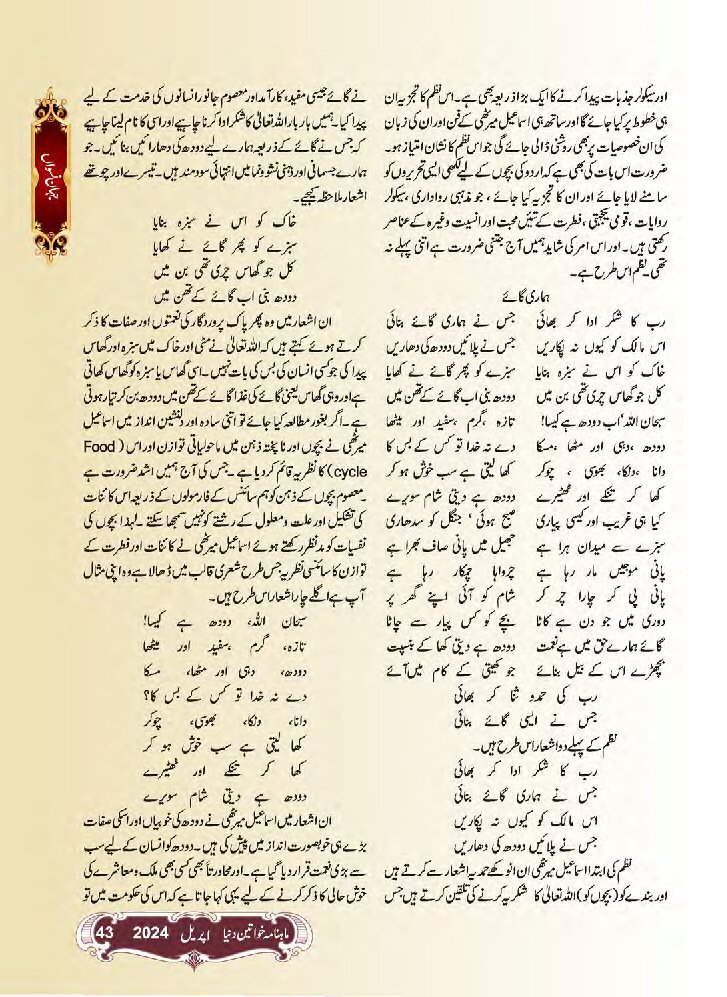 اور سیکولر جذبات پیدا کرنے کا ایک بڑا ذریعہ بھی ہے۔ اس نظم کا تجزیہ ان
ہی خطوط پر کیا جائے گا اور ساتھ ہی اسماعیل میرٹھی کے فن اور ان کی زبان
کی ان خصوصیات پر بھی روشنی ڈالی جائے گی جو اس نظم کا نشان امتیاز ہو۔
ضرورت اس بات کی بھی ہے کہ اردو کی بچوں کے لیے لکھی ایسی تحریروں کو
سامنے لایا جائے اور ان کا تجزیہ کیا جائے، جو مذہبی رواداری، سیکولر
روایات، قومی یکجہتی، فطرت کے تئیں محبت اور انسیت وغیرہ کے عناصر
رکھتی ہیں۔ اور اس امر کی شاید ہمیں آج جتنی ضرورت ہے اتنی پہلے نہ
تھی۔ نظم اس طرح ہے۔
ہماری گائے
رب کا شکر ادا کر بھائی جس نے ہماری گائے بنائی
اس مالک کو کیوں نہ پکاریں جس نے پلائیں دودھ کی دھاریں
خاک کو اس نے سبزہ بنایا سبزے کو پھر گائے نے کھایا
کل جو گھاس چری تھی بن میں دودھ بنی اب گائے کے تھن میں
سبحان اللہ اب دودھ ہے کیسا! تازہ، گرم، سفید اور میٹھا
دودھ، دہی اور مٹھا، مسکا دے نہ خدا تو کس کے بس کا
دانا، دنکا، بھوسی، چوکر کھا لیتی ہے سب خوش ہو کر
کھا کر تنکے اور ٹھیڑے دودھ ہے دیتی شام سویرے
کیا ہی غریب اور کیسی پیاری صبح ہوئی' جنگل کو سدھاری
سبزے سے میدان ہرا ہے جھیل میں پانی صاف بھرا ہے
پانی موجیں مار رہا ہے چرواہا چمکار رہا ہے
پانی پی کر چارا چر کر شام کو آئی اپنے گھر پر
دوری میں جو دن ہے کاٹا بچے کو کس پیار سے چاٹا
گائے ہمارے حق میں ہے نعمت دودھ ہے دیتی کھا کے بنسپت
بچھڑے اس کے بیل بنائے جو کھیتی کے کام میں آئے
رب کی حمد و ثنا کر بھائی
جس نے ایسی گائے بنائی
نظم کے پہلے دو اشعار اس طرح ہیں۔
رب کا شکر ادا کر بھائی
جس نے ہماری گائے بنائی
اس مالک کو کیوں نہ پکاریں
جس نے پلائیں دودھ کی دھاریں
نظم کی ابتدا اسماعیل میرٹھی ان انوکھے حمدیہ اشعار سے کرتے ہیں
اور بندے کو (بچوں کو) اللہ تعالیٰ کا شکریہ کرنے کی تلقین کرتے ہیں جس
نے گائے جیسی مفید، کارآمد اور معصوم جانور انسانوں کی خدمت کے لیے
پیدا کیا۔ ہمیں بار بار اللہ تعالیٰ کا شکر ادا کرنا چاہیے اور اسی کا نام لینا چاہیے
کہ جس نے گائے کے ذریعہ ہمارے لیے دودھ کی دھارائیں بنائیں۔ جو
ہمارے جسمانی اور ذہنی نشوونما میں انتہائی سودمند ہیں۔ تیسرے اور چوتھے
اشعار ملاحظہ کیجیے۔
خاک کو اس نے سبزہ بنایا
سبزے کو پھر گائے نے کھایا
کل جو گھاس چری تھی بن میں
دودھ بنی اب گائے کے تھن میں
ان اشعار میں وہ پھر پاک پروردگار کی نعمتوں اور صفات کا ذکر
کرتے ہوئے کہتے ہیں کہ اللہ تعالیٰ نے مٹی اور خاک میں سبزہ اور گھاس
پیدا کی جو کسی انسان کی بس کی بات نہیں۔ اسی گھاس یا سبزہ کو گھاس کھاتی
ہے اور وہی گھاس یعنی گائے کی غذا گائے کے تھن میں دودھ بن کر تیار ہوتی
ہے۔ اگر بغور مطالعہ کیا جائے تو اتنی سادہ اور دلنشین انداز میں اسماعیل
میرٹھی نے بچوں اور ناپختہ ذہن میں ماحولیاتی توازن اور اس (Food
cycle) کا نظریہ قائم کر دیا ہے۔ جس کی آج ہمیں اشد ضرورت ہے
۔معصوم بچوں کے ذہن کو ہم سائنس کے فارمولوں کے ذریعہ اس کائنات
کی تشکیل اور علت و معلول کے رشتے کو نہیں سمجھا سکتے۔ لہٰذا بچوں کی
نفسیات کو مدنظر رکھتے ہوئے اسماعیل میرٹھی نے کائنات اور فطرت کے
توازن کا سائنسی نظریہ جس طرح شعری قالب میں ڈھالا ہے وہ اپنی مثال
آپ ہے اگلے چار اشعار اس طرح ہیں۔
سبحان اللہ، دودھ ہے کیسا!
تازہ، گرم، سفید اور میٹھا
دودھ، دہی اور مٹھا، مسکا
دے نہ خدا تو کس کے بس کا؟
دانا، دنکا، بھوسی، چوکر
کھا لیتی ہے سب خوش ہو کر
کھا کر تنکے اور ٹھیڑے
دودھ ہے دیتی شام سویرے
ان اشعار میں اسماعیل میرٹھی نے دودھ کی خوبیاں اور اسکی صفات
بڑے ہی خوبصورت انداز میں پیش کی ہیں۔ دودھ کو انسان کے لیے سب
سے بڑی نعمت قرار دیا گیا ہے۔ اور محاورتا بھی کسی بھی ملک و معاشرے کی
خوش حالی کا ذکر کرنے کے لیے یہی کہا جاتا ہے کہ اس کی حکومت میں تو
جہانِ نسواں
ماہنامہ خواتین دنیا اپریل 2024 43